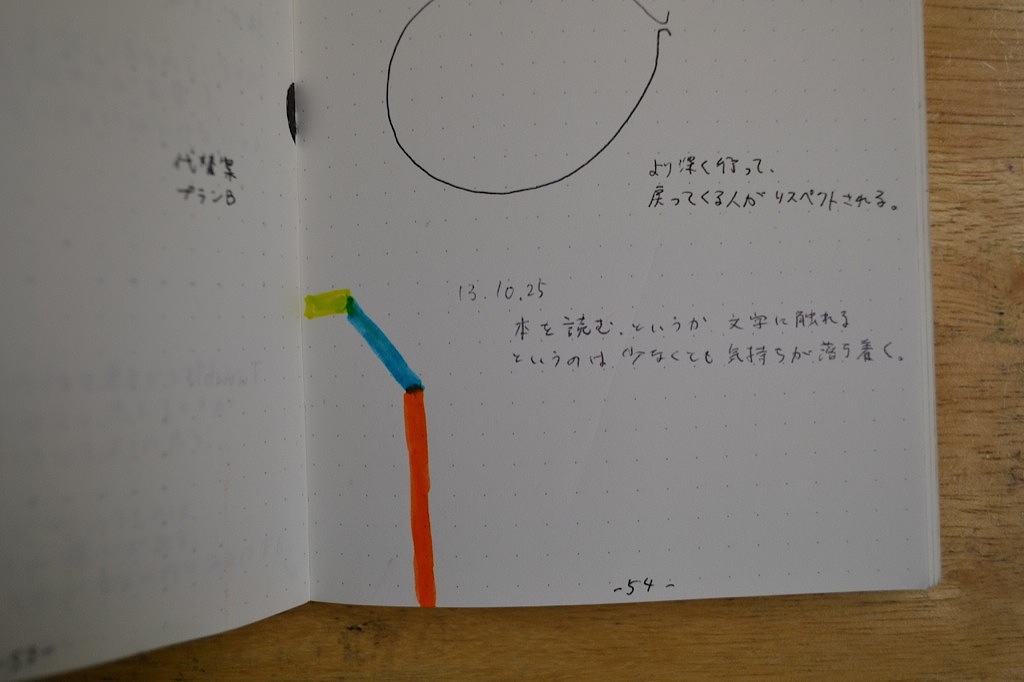 代替案
プランB
より深く行って、
戻ってくる人がリスペクトされる。
13.10.25
本を読む、というか 文字に触れる
というのは 少なくても 気持ちが落ち着く。
-54-